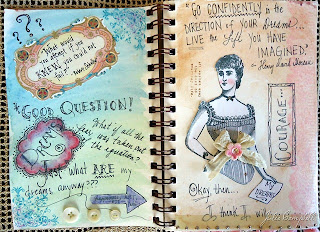 ???
"What would
you attempt if you
KNEW you could not
fail?"
*GOOD QUESTION!
DREAM
What if all the
fear was taken out
of the equation?
Just what ARE my
dreams anyway???
"GO CONFIDENTLY in the
DIRECTION of YOUR dreams...
LIVE the life YOU HAVE
IMAGINED."
~ Henry David Thoreau
COURAGE...
Okay, then...
MY DREAMS
I think I will